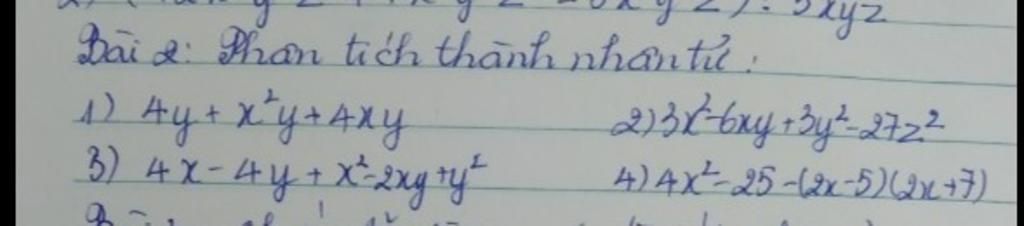 : 5xyz
Bài 2: Phân tích thành nhân tử:
1) 4y + x²y + 4xy 2) 3x² - 6xy + 3y² - 27z²
3) 4x - 4y + x² - 2xy + y² 4) 4x² - 25 - (2x - 5)(2x + 7)